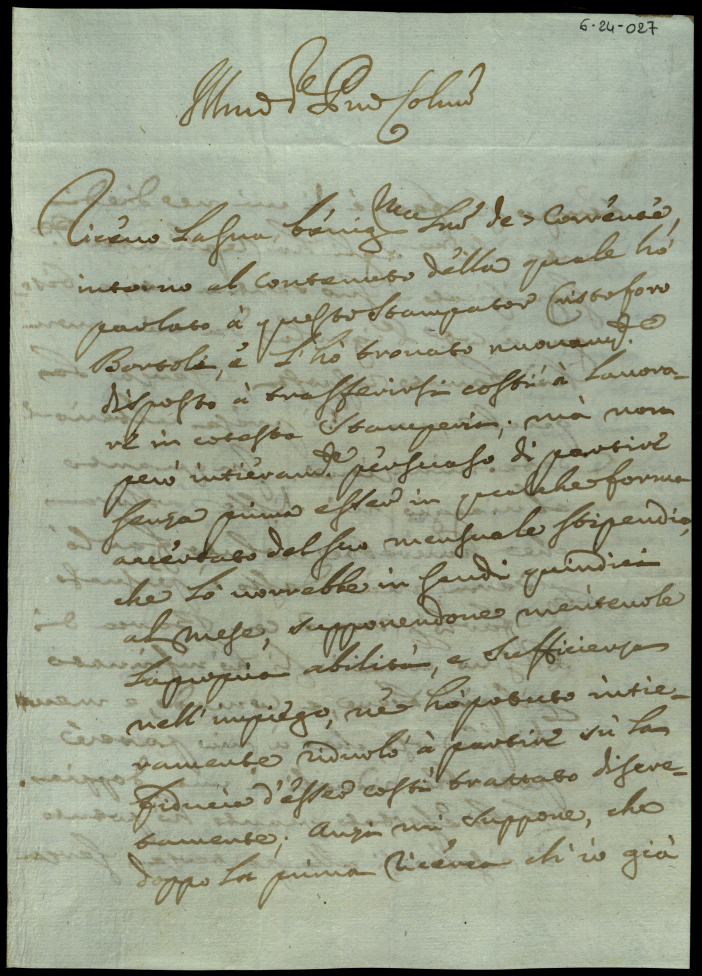 6-24-027
Illmo Sre Prone Colmo
Ricevo La Sua benigma Sino de > Corrente,
intorno al contenuto della quale hó
parlato à questo Stampator Cristoforo
Bortoli, e l'hó trovato nuovamte
disposto à trasferirsi costí à Lavora-
re in cotesta Stamperia; mà non
peró intieramte persuaso di partire
senza prima esser in qualche forma
accertato del suo mensuale stipendio,
che Ló vorrebbe in scudi quindici
al mese, supponendone meritevole
La propria abilità, e sufficienza
nell'impiego, nè hò potuto intie-
ramente ridurló à partire sù La
fiducia d'esser costí trattato discre-
tamente. Anzi mi suppone, che
doppo La prima ricerca ch'io già